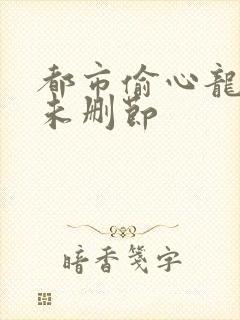 都市偷心龍
未删節
暗香笺字